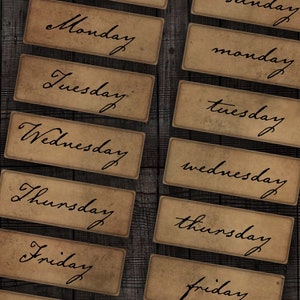 Monday
Tuesday
Wednesday
Thursday
Friday
sunday
monday
tuesday
wednesday
thursday
friday